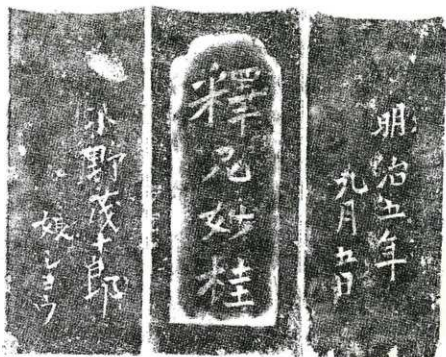 明治五年
九月五日
釋尼妙桂
小野茂十郎
娘シヨウ